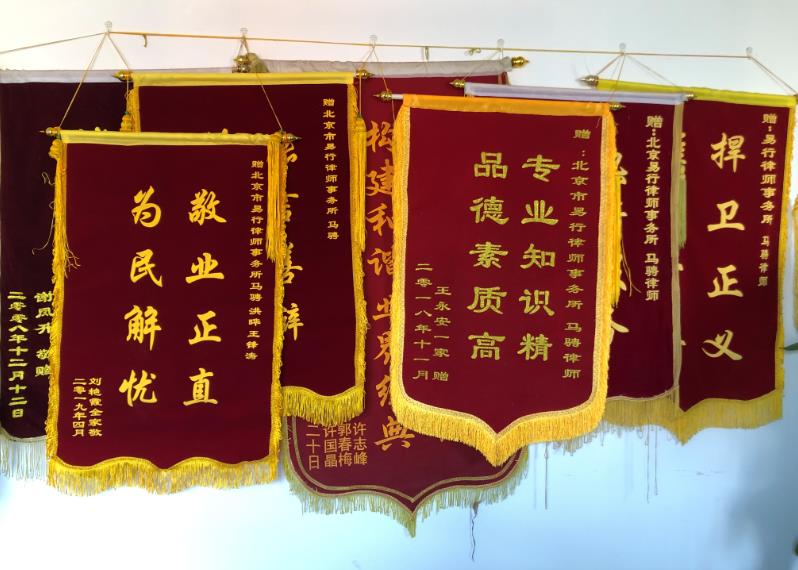 谢凤升 敬赠
二零零八年十二月十二日
赠北京市易行律师事务所马骋 洪晔王锋涛
敬业正直
为民解忧
刘艳霞全家敬
二零一九年四月
赠北京市易行律师事务所 马骋
言善辩
构建和谐业界经典
许志峰
郭春梅
许国晶
二十日
赠：北京市易行律师事务所 马骋律师
专业知识精
品德素质高
王永安一家赠
二零一八年十一月
赠：北京易行律师事务所 马骋律师
赠：易行律师事务所 马骋律师
捍卫正义